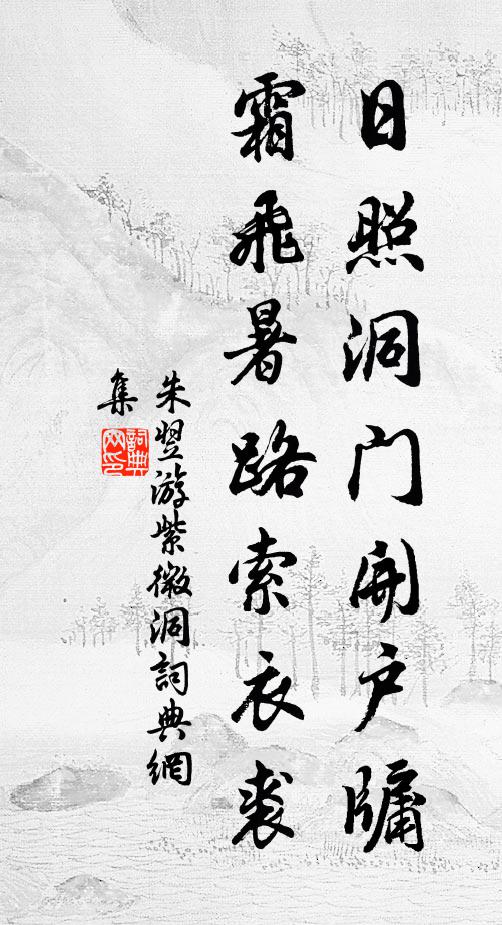 日照洞门開户牖
霜飛暑路索衣裘
朱翌游紫微洞詞典網
集
詞典网印